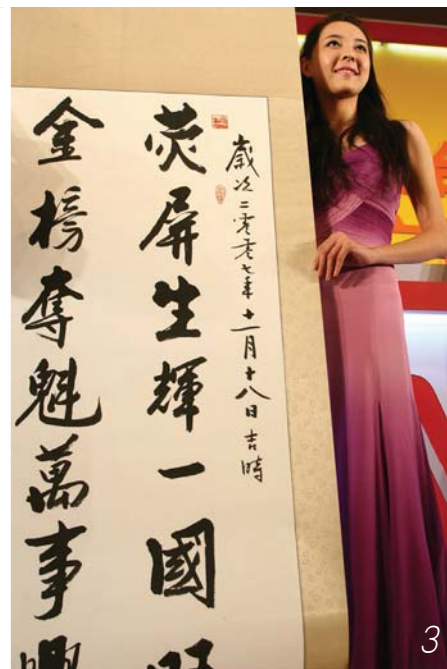 歲次二零零七年十一月十八日吉時
荧屏生輝一國
金榜奪魁萬事興
3